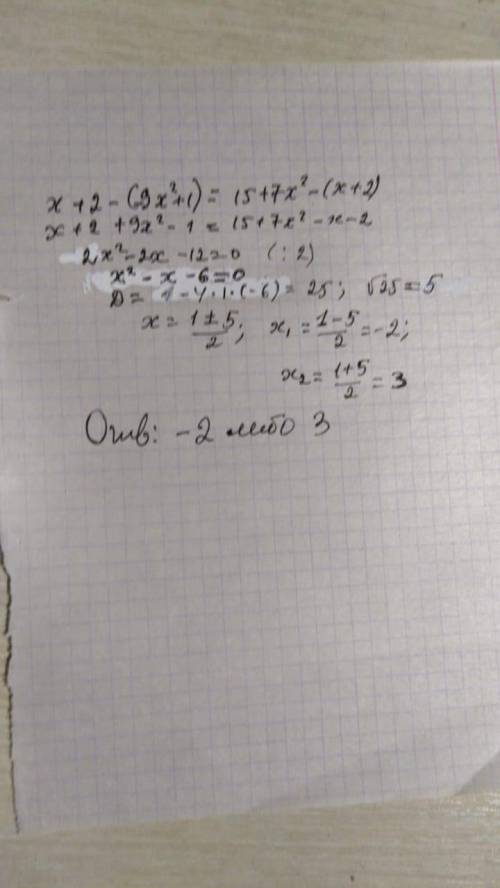 x + 2 - (9x²+1) = 15+7x² - (x+2)
x + 2 + 9x² - 1 = 15+7x² - x - 2
2x² - 2x - 12 = 0 (: 2)
x² - x - 6 = 0
D = 1 - 4·1·(-6) = 25; √25 = 5
x = (1±5)/2; x₁ = (1-5)/2 = -2;
x₂ = (1+5)/2 = 3
Отв: -2 либо 3